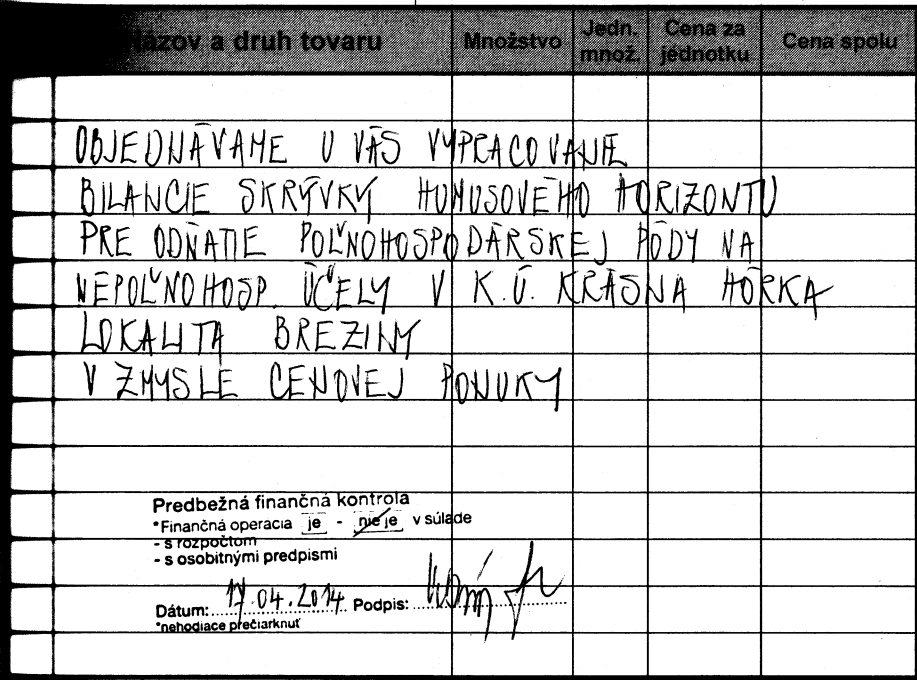 Názov a druh tovaru Množstvo Jedn. množ. Cena za jednotku Cena spolu
OBJEDNÁVAME U VÁS VYPRACOVANIE
BILANCIE SKRÝVKY HUMUSOVÉHO HORIZONTU
PRE ODŇATIE POĽNOHOSPODÁRSKEJ PÔDY NA
NEPOĽNOHOSP. ÚČELY V K.Ú. KRÁSNA HÔRKA
LOKALITA BREZINY
V ZMYSLE CENOVEJ PONUKY
Predbežná finančná kontrola
*Finančná operacia je - nie je v súlade
- s rozpočtom
- s osobitnými predpismi
Dátum: 17.04.2014 Podpis:
*nehodiace prečiarknuť